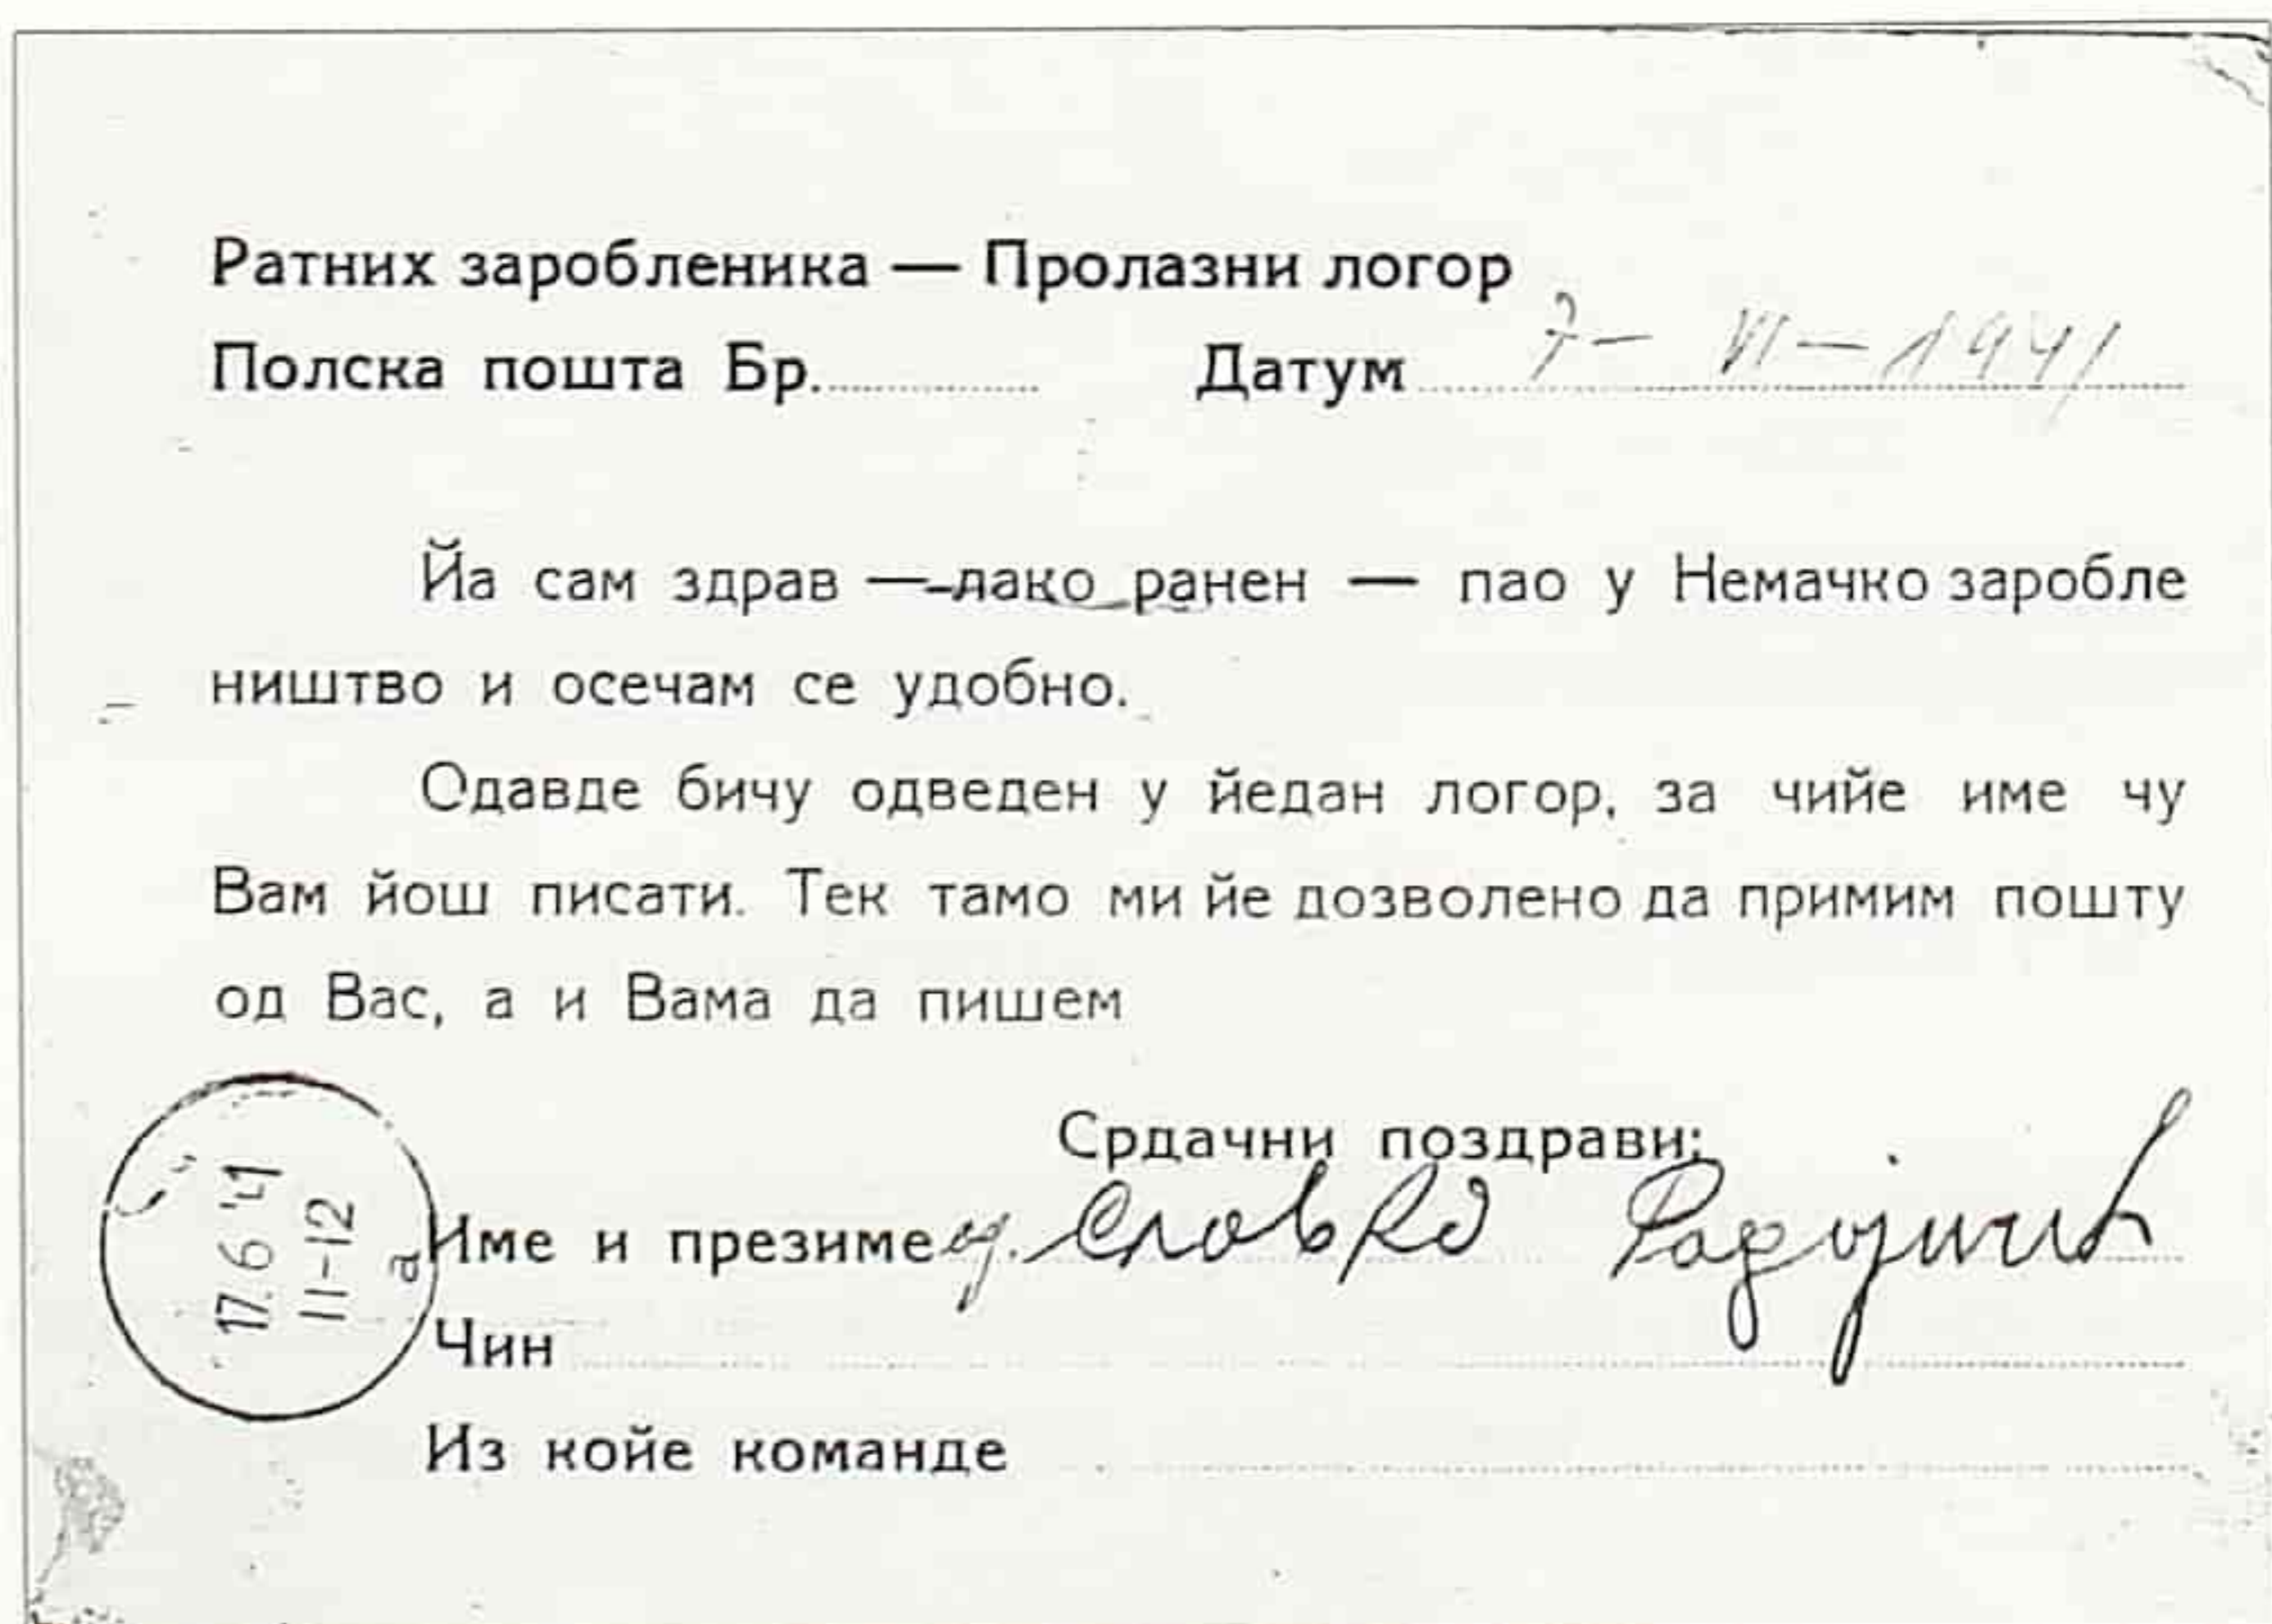 Ратних заробленика — Пролазни логор
Полска пошта Бр. Датум 7 - VI - 1941
Йа сам здрав — лако ранен — пао у Немачко заробле
ништво и осечам се удобно.
Одавде бичу одведен у йедан логор, за чийе име чу
Вам йош писати. Тек тамо ми йе дозволено да примим пошту
од Вас, а и Вама да пишем
Срдачни поздрави:
17.6 41
11-12
a
Име и презиме Славко Радојичић
Чин
Из койе команде